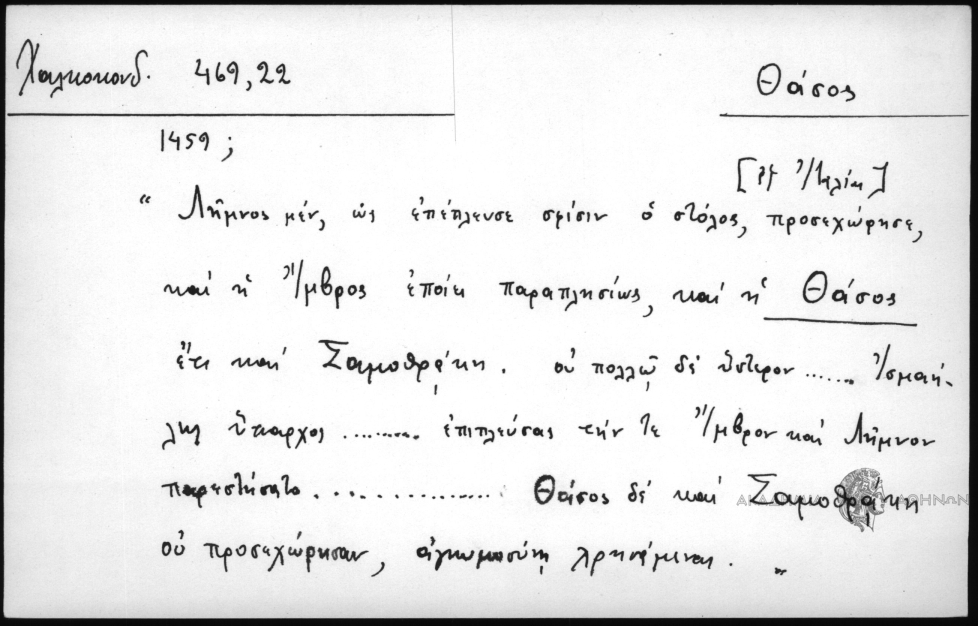 Χαλκοκονδ. 469,22
Θάσος
1459 ;
[ἐξ Ἰταλίας]
“ Λῆμνος μέν, ὡς ἐπέπλευσε σφίσιν ὁ στόλος, προσεχώρησε,
καὶ ἡ Ἴμβρος ἐποίει παραπλησίως, καὶ ἡ Θάσος
ἔτι καὶ Σαμοθρᾴκη . οὐ πολλῷ δὲ ὕστερον ...... Ἰσμαή-
λης ὕπαρχος ......... ἐπιπλεύσας τήν τε Ἴμβρον καὶ Λῆμνον
παρεστήσατο ................. Θάσος δὲ καὶ Σαμοθρᾴκη
οὐ προσεχώρησαν, ἀγνωμοσύνῃ χρησάμεναι . „
ΑΚΑΔΗΜΙΑ ΑΘΗΝΩΝ